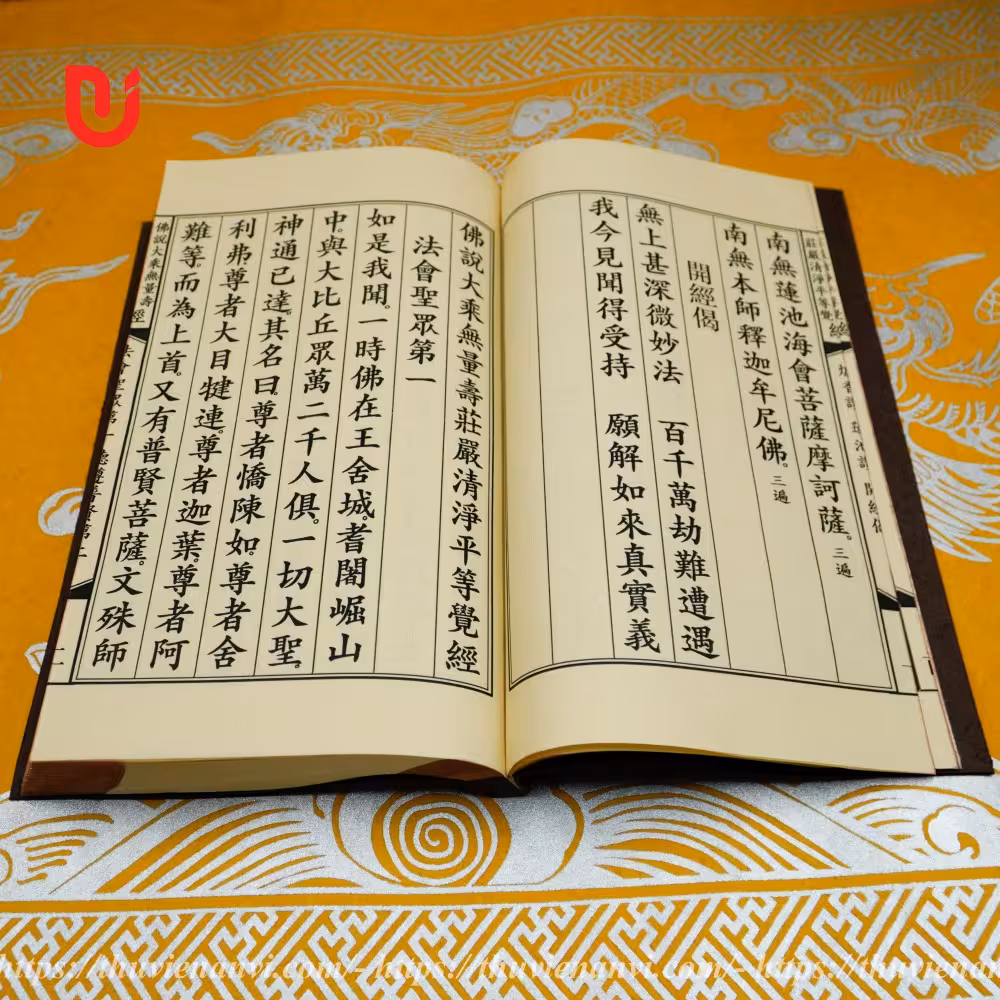 南無蓮池海會菩薩摩訶薩。三遍
南無本師釋迦牟尼佛。三遍
開經偈
無上甚深微妙法　百千萬劫難遭遇
我今見聞得受持　願解如來真實義
佛說大乘無量壽莊嚴清淨平等覺經
法會聖眾第一
如是我聞。一時佛在王舍城。耆闍崛山
中。與大比丘眾萬二千人俱。一切大聖。
神通已達。其名曰。尊者憍陳如。尊者舍
利弗。尊者大目犍連。尊者迦葉。尊者阿
難等。而為上首。又有普賢菩薩。文殊師
佛說大乘無量壽
經
莊嚴清淨平等覺
經
蓮池讚 開經偈
https://thuvienanvi.com/- https://thuvienanvi.com/- https://thuvienan